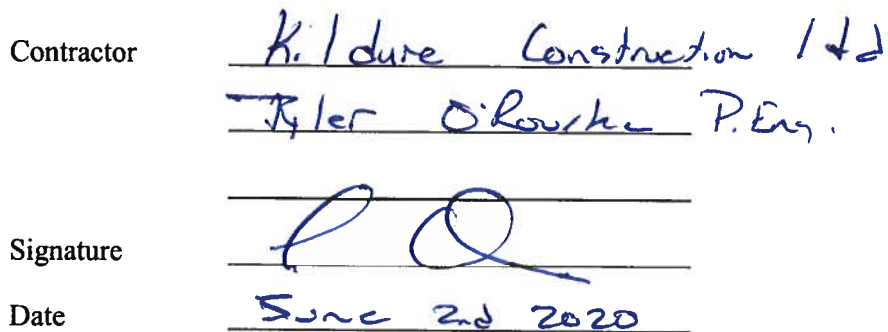 Contractor Kildure Construction ltd
Tyler O'Rourke P.Eng.
Signature
Date June 2nd 2020